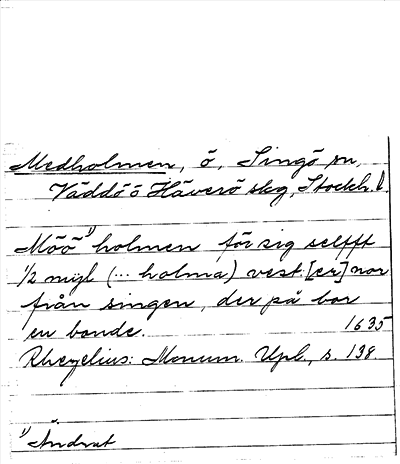 Medholmen, ö, Singö sn,
Väddö ö Häverö skg, Stockh. l.
Möö¹⁾ holmen för sig selfft
1/2 mijl (... holma) vest [er] nor
från singen, der på bor
en bonde. 1635
Rhezelius: Monum. Upl., s. 138.
¹⁾ Ändrat